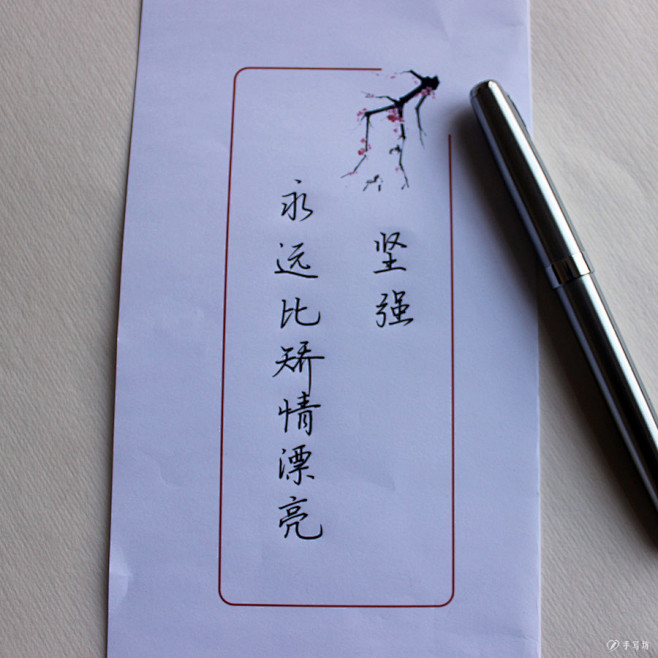 坚强
永远比矫情漂亮
手写坊